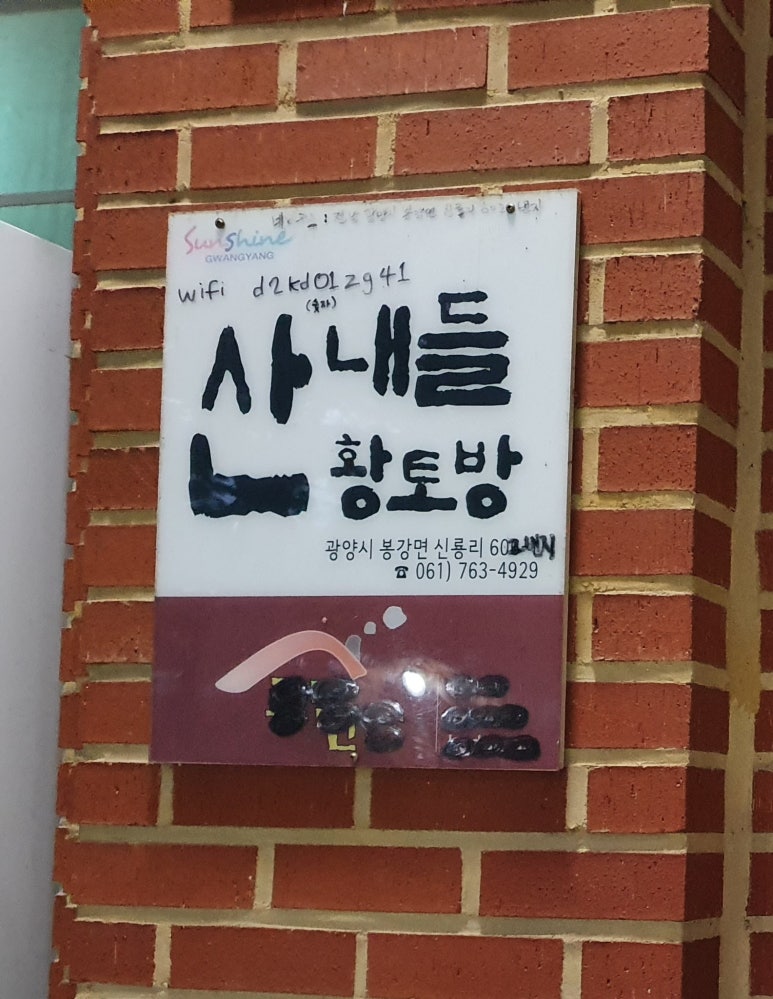 Sunshine
GWANGYANG
wifi d2kd01zg41
(숫자)
산내들
황토방
광양시 봉강면 신룡리 602번지
☎ 061) 763-4929